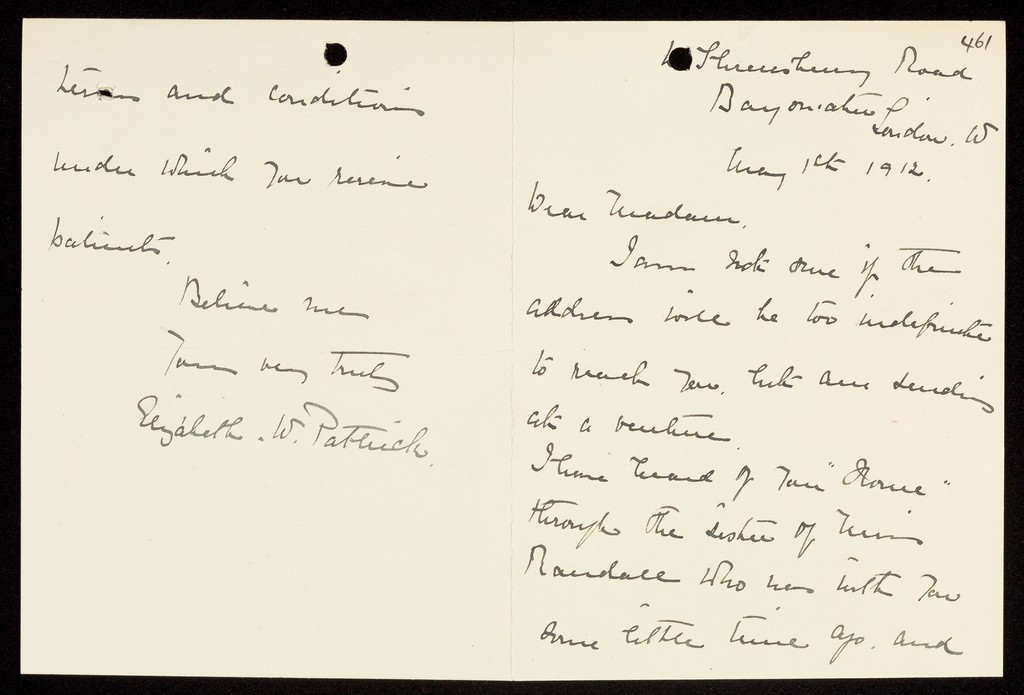 461
Shrewsbury Road
Bayswater
London. W
May 1st 1912.
Dear Madam,
I am not sure if the
address will be too indefinite
to reach you, but am sending
at a venture.
I have heard of your "Home"
through the sister of Miss
Randall who was with you
some little time ago. and
terms and conditions
under which you receive
patients.
Believe me
Yours very truly
Elizabeth. W. Patrick.